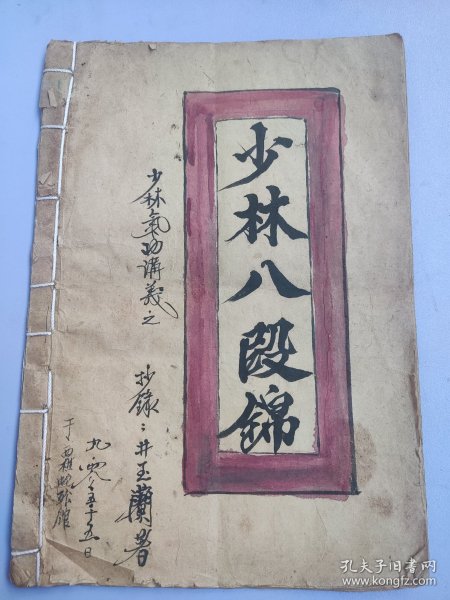 少林八段锦
少林氣功講義之
抄録：井玉蘭署
九
五十五日
于西
孔夫子旧书网
www.kongfz.com